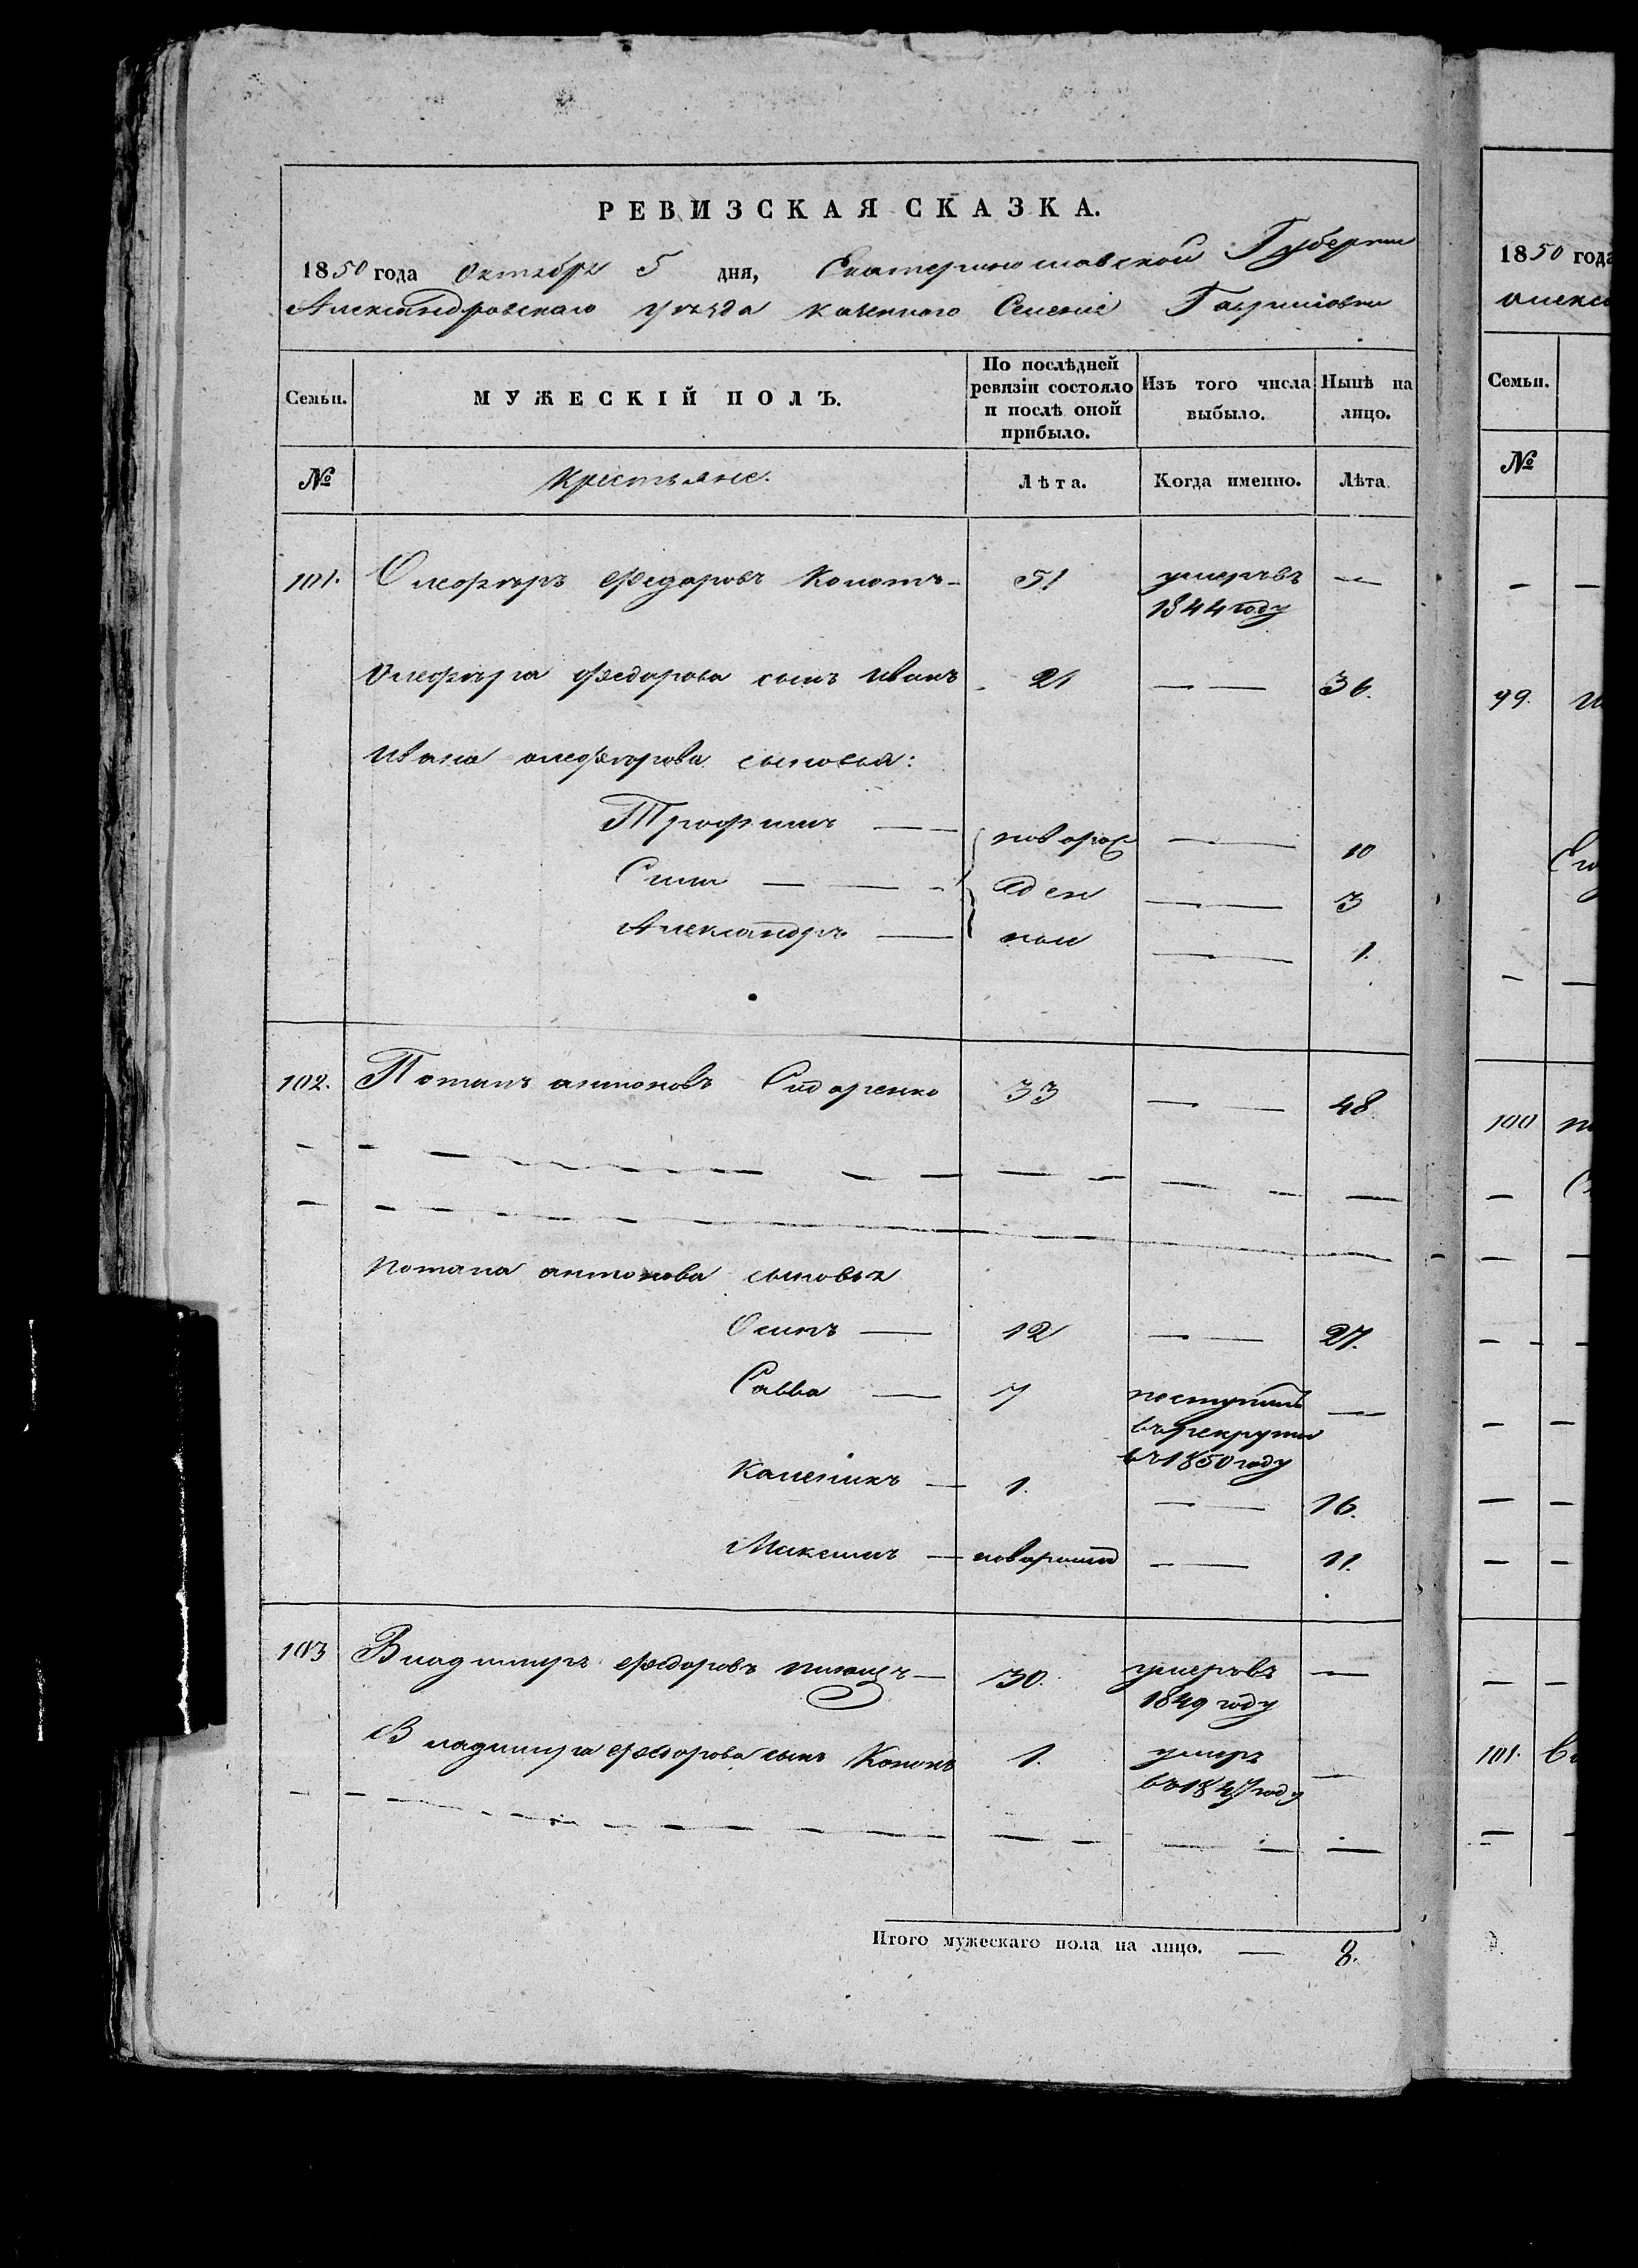 РЕВИЗСКАЯ СКАЗКА.
1850 года Октября 5 дня, Екатеринославской Губернии
Александровскаго уѣзда казеннаго Селенія Гавриловки
Семьи.
МУЖЕСКІЙ ПОЛЪ.
По послѣдней ревизіи состояло и послѣ оной прибыло.
Изъ того числа выбыло.
Нынѣ на лицо.
№ Крестьяне. Лѣта. Когда именно. Лѣта
101. Федоровъ 51 умеръ въ —
1844 году
Федорова сынъ Иванъ 21 — — 36.
Ивана сыновья:
Трофимъ — — новорож — — 10
— — — ден — — 3
Александръ — ныи — — 1.
102. Потапъ антоновъ Сидоренко 33 — — 48
Потапа антонова сыновья
Осипъ — 12 — — 27.
Савва — 7 поступилъ —
въ рекруты
въ 1850 году
Каленикъ — 1. — — 16.
Максимъ — новорожд — — 11.
103 Владимиръ Федоровъ — 30. умеръ въ —
1849 году
Владимира Федорова сынъ Кононъ 1. умеръ —
въ 1847 году
Итого мужескаго пола на лицо. — 8.
1850 года
Семьи.
№
99.
100
101.